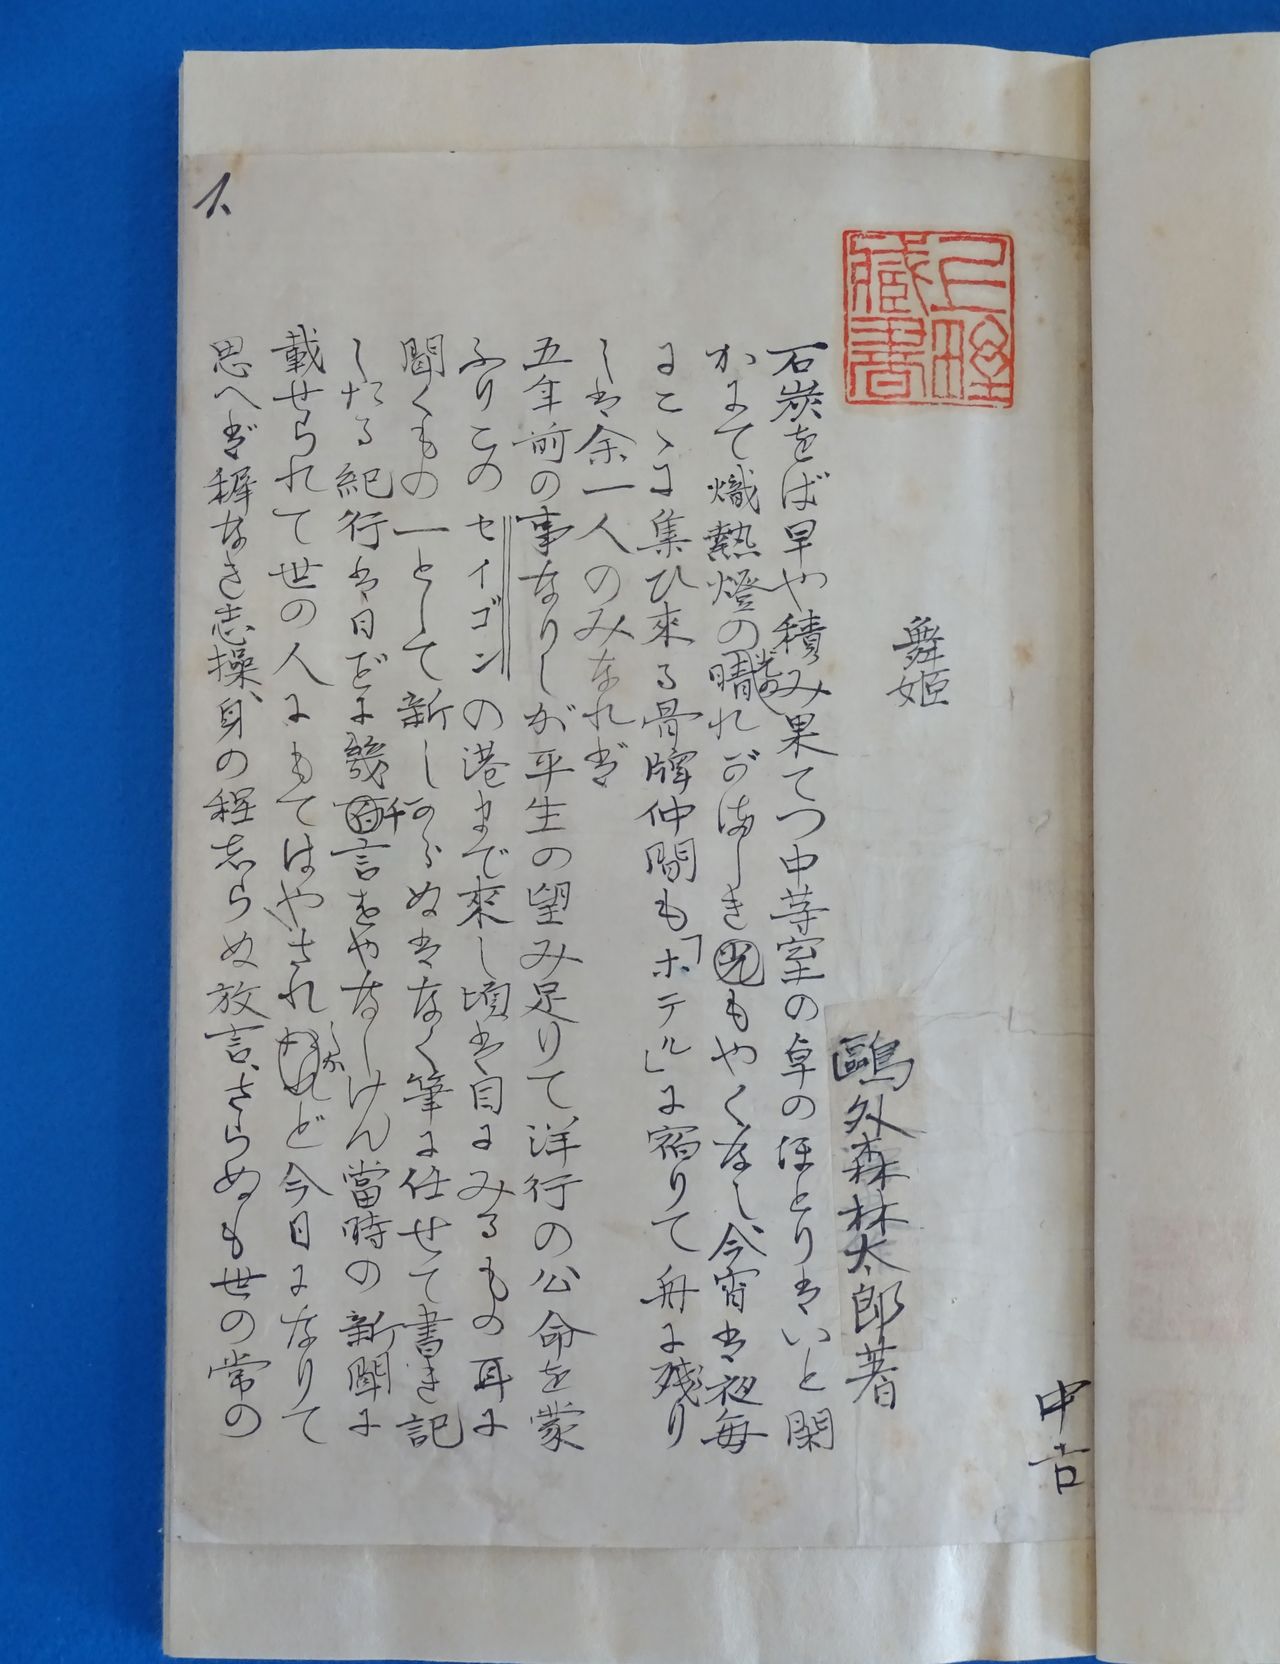 舞姫
鷗外森林太郎著
中古
石炭をば早や積み果てつ中等室の卓のほとりはいと閑
かにて熾熱燈の晴れがましきもやくなし、今宵は夜毎
にこゝに集ひ來る骨牌仲間も「ホテル」に宿りて舟に殘り
しは余一人のみなれば
五年前の事なりしが平生の望み足りて洋行の公命を蒙
ふりこのセイゴンの港まで來し頃は目にみるもの耳に
聞くもの一として新しからぬはなく筆に任せて書き記
したる紀行は日ごとに幾千言をやなしけん當時の新聞に
載せられて世の人にもてはやされしかど今日になりて
思へば穉なき志操、身の程志らぬ放言、さらぬも世の常の
1.
藏書